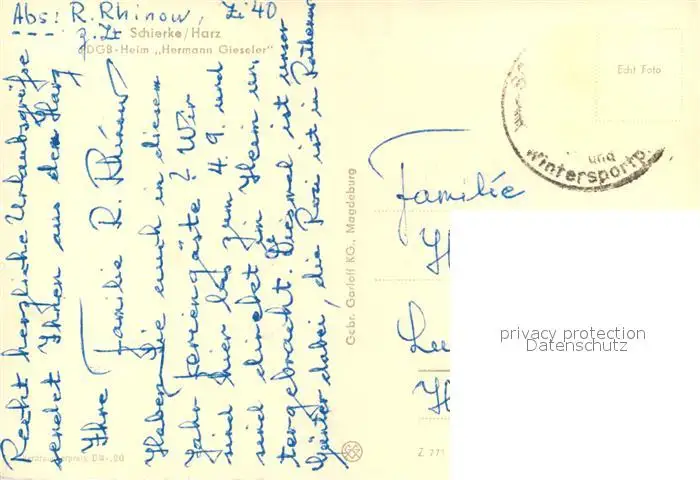 Abs: R. Rhinow, Zi 40
z. Zt. Schierke/Harz
FDGB-Heim „Hermann Gieseler"
Recht herzliche Urlaubsgrüße
sendet Ihnen aus dem Harz
Ihre Familie R. Rhinow
Haben Sie auch in diesem
Jahr Feriengäste? Wir
sind hier bis zum 4.9. und
sind direkt im Heim un
tergebracht. Diesmal ist unser
Günter dabei, die Rosi ist in Rathenow
Gebr. Garloff KG., Magdeburg
Echt Foto
und
Wintersportp
Familie
H
Lu
H
Z 771
privacy protection
Datenschutz